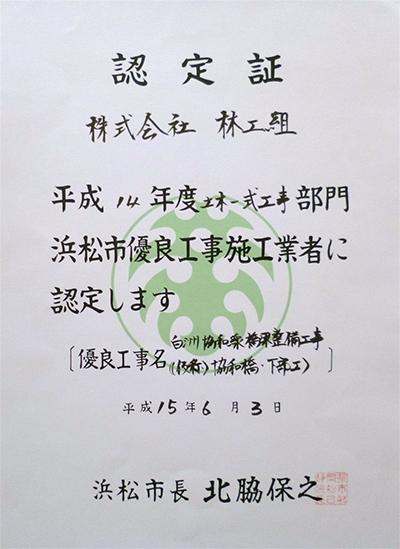 認定証
株式会社 林工組
平成14年度土木一式工事部門
浜松市優良工事施工業者に
認定します
〔優良工事名 白洲協和 橋梁整備工事
(仮称)協和橋・下部工)〕
平成15年6月3日
浜松市長 北脇保之